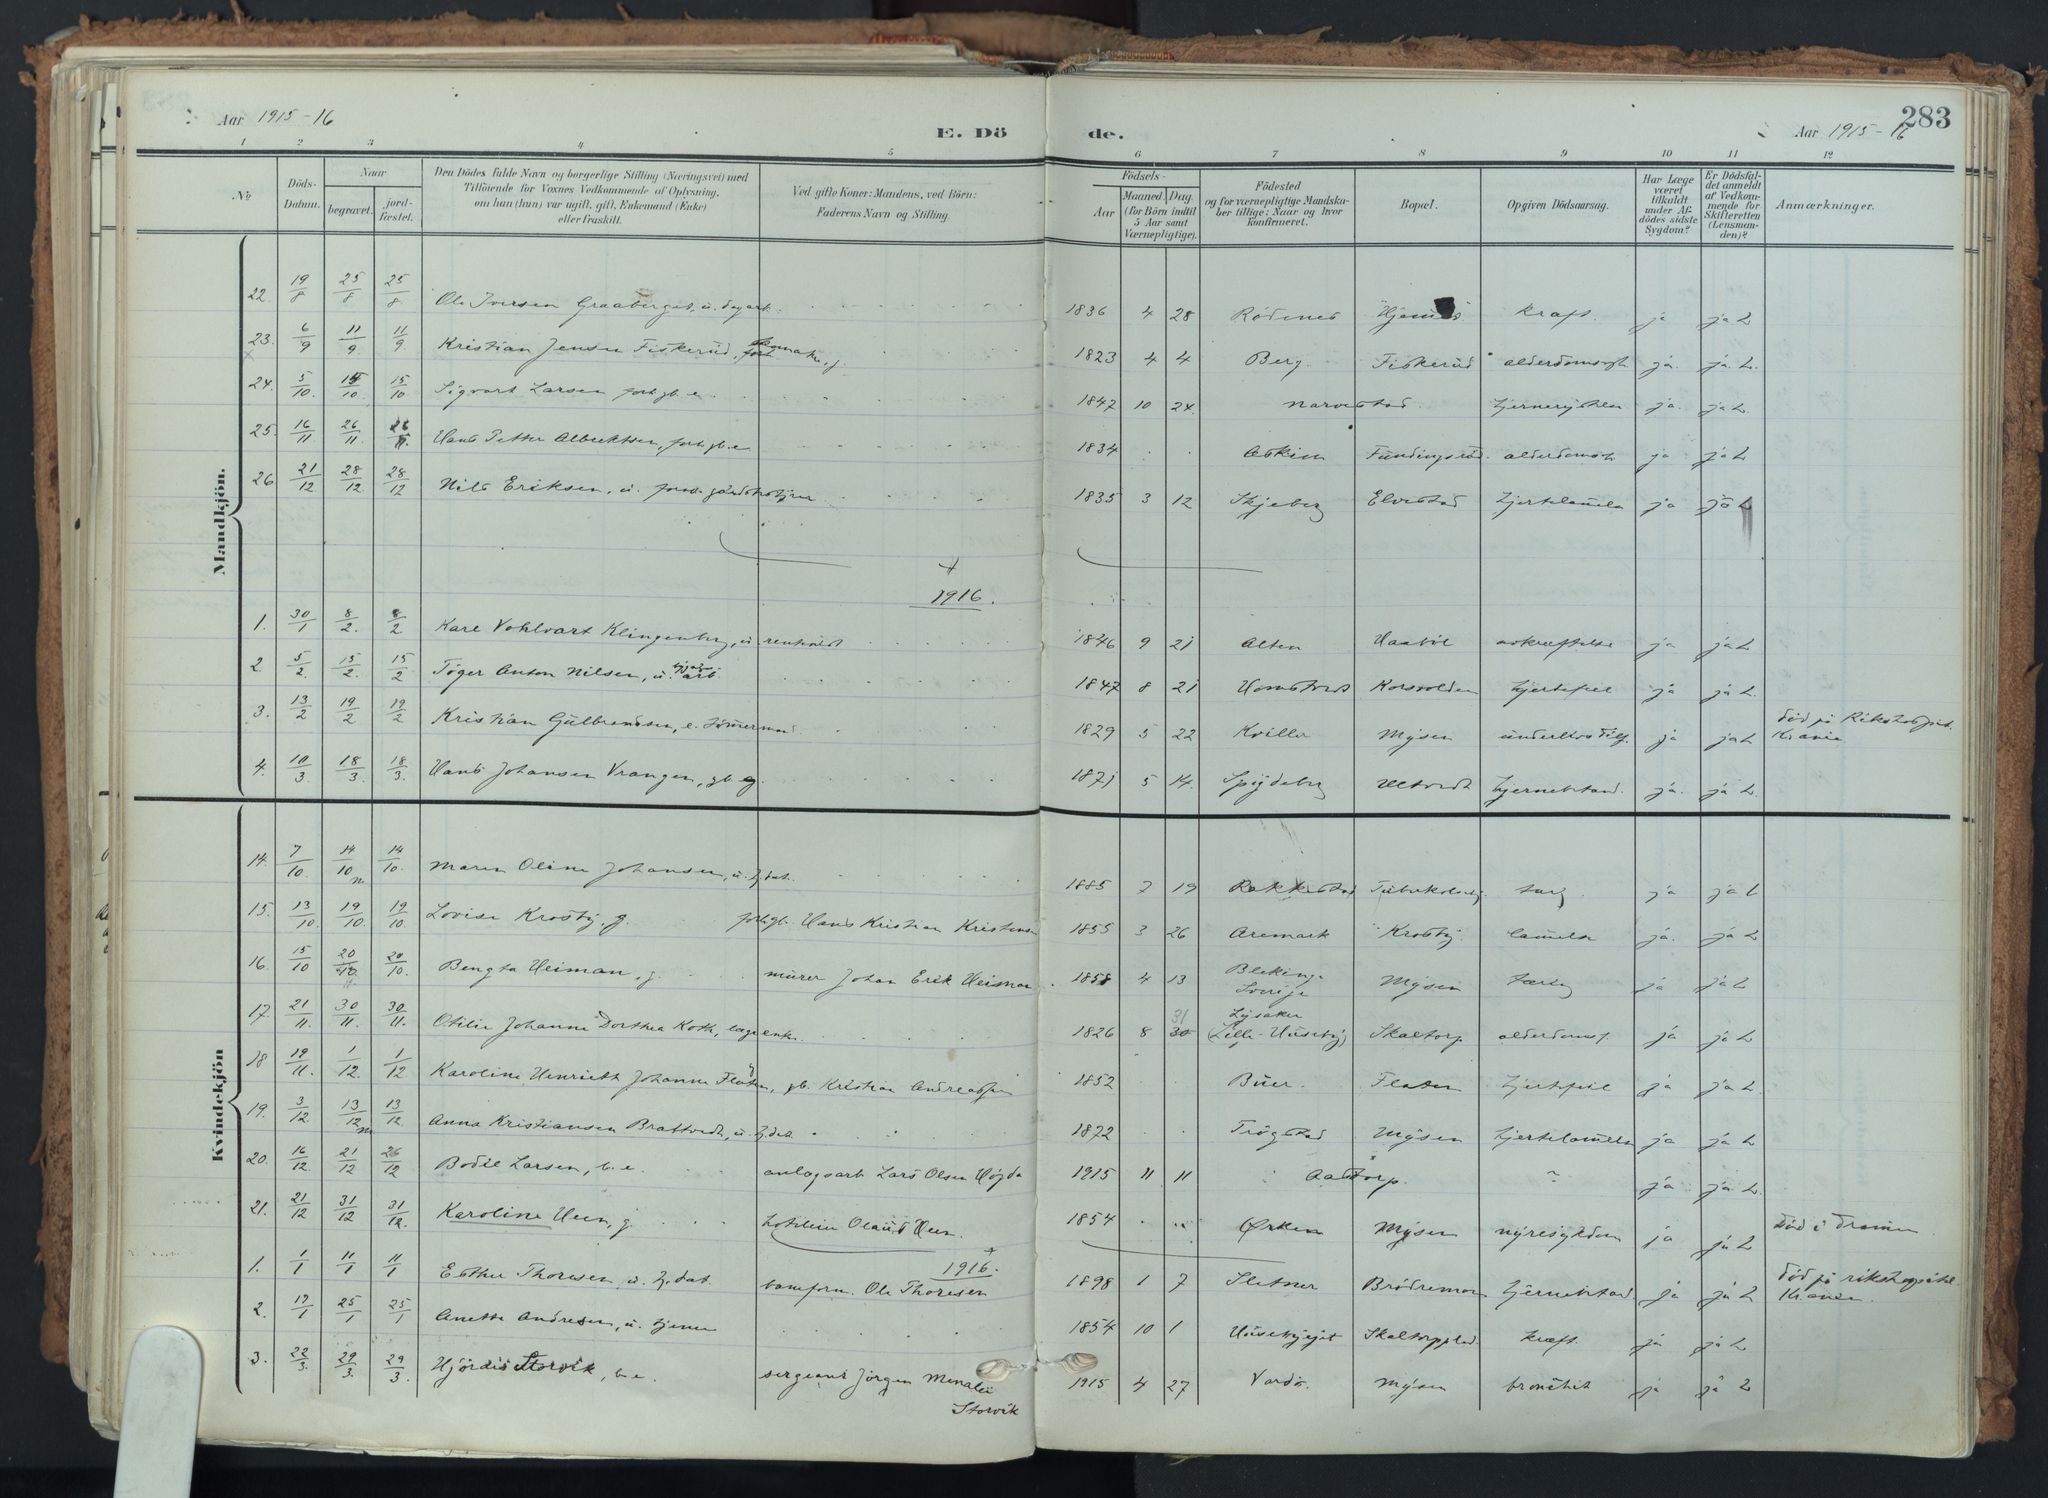 Aar 1915-16
E. Dö
de.
Aar 1915-16
283
1 2 3 4 5 6 7 8 9 10 11 12
No
Döds-Datum.
Naar
begravet.
jord-fæstet.
Den Dödes fulde Navn og borgerlige Stilling (Næringsvei) med
Tilföiende for Voxnes Vedkommende af Oplysning,
om han (hun) var ugift, gift, Enkemand (Enke)
eller fraskilt.
Ved gifte Koner: Mandens, ved Börn:
Faderens Navn og Stilling.
Födsels-
Aar
Maaned. Dag.
(for Börn indtil
5 Aar samt
Værnepligtige).
Födested
og for værnepligtige Mandska-
ber tillige: Naar og hvor
Konfirmeret.
Bopæl.
Opgiven Dödsaarsag.
Har Læge
været
tilkaldt
under Af-
dödes sidste
Sygdom?
Er Dödsfal-
det anmeldt
af Vedkom-
mende for
Skifteretten
(Lensman-
den)?
Anmærkninger.
Mandkjön.
22. 19/8 25/8 25/8 Ole Iversen Graaberget, u. dagarb. 1836 4 28 Rödenes kræft. ja ja L
23. 6/9 11/9 11/9 Kristian Jensen Fiskerud, 1823 4 4 Berg Fiskerud ja. ja. L.
24. 5/10 15/10 15/10 Sigvart Larsen forh. gb. e. 1847 10 24. Narvestad. ja. ja L.
25. 16/11 26/11 26/11 Hans Petter Albrektsen, forh. gb. e 1834 Askim ja ja L
26 21/12 28/12 28/12 Nils Eriksen, u. 1835 3 12 Skjeberg Elvestad hjertelamelse ja ja L
1916.
1. 30/1 8/2. 8/2 Kare Vohlvart Klingenberg, u 1846 9 21 Alten avkræftelse ja ja L
2. 5/2. 15/2. 15/2 Töger Anton Nilsen, u. arb. 1847 8 21 Korsvolden hjertefeil ja ja L.
3. 13/2 19/2 19/2 Kristian Gulbrandsen, e. tömermand 1829 5 22 Kviller Mysen ja ja L död på Rikshospit.
Kr.ania
4. 10/3 18/3. 18/3. Hans Johansen Vrangen, gb. eg. 1871 5 14. Spydeberg hjernebetænd. ja. ja L.
Kvindekjön
14. 7/10. 14/10 14/10. Maren Oline Johansen, u. tj. dat. 1885 7 19 Rakkestad tæring ja ja L
15. 13/10. 19/10. 19/10. Lovise Krosby, g. forh. gb. Hans Kristian Kristensen 1855 3 26 Aremark Krosby. lamelse ja. ja L
16. 15/10 20/10 20/10. Bengta Heiman, g. murer Johan Erik Heiman 1858 4 13 Blekinge
Sverige Mysen tæring ja ja L
17. 21/11. 30/11. 30/11. Otilie Johanne Dorthea Koth, enke. 1826 8 31 Lysaker
(Lille-Huseby) Skaltorp alderdomssl. ja ja L
18 19/11. 1/12. 1/12 Karoline Henriette Johanne Flaten, gb. Kristian 1852 Buer. Flaten hjertefeil ja ja L
19. 3/12 13/12 13/12. Anna Kristiansen Brattvedt, u. tj. dat. 1872 Trögstad Mysen hjertelamelse ja ja L
20. 16/12. 21/12 26/12 Bodil Larsen, b. e. anlægsarb. Lars Olsen Högda 1915 11 11 Aastorp. ja ja L.
21. 21/12 31/12 31/12. Karoline Heen, g. Olaus Heen. 1854 Ørken Mysen nyresykdom ja ja L död i Drammen
1916.
1. 1/1 11/1 11/1 Esther Thoresen, u. tj. dat. baneform. Ole Thoresen 1898 1 7 Sletner Brödremoen hjernebetænd ja ja L död på rikshospital
Kr.ania.
2. 17/1 25/1 25/1 Anette Andresen, u. tjener 1854 10 1 kræft. ja ja L
3. 22/3. 29/3. 29/3. Hjördis Storvik, b. e. sergeant Jörgen
Storvik 1915 4 27 Vardö. Mysen bronchit ja ja L